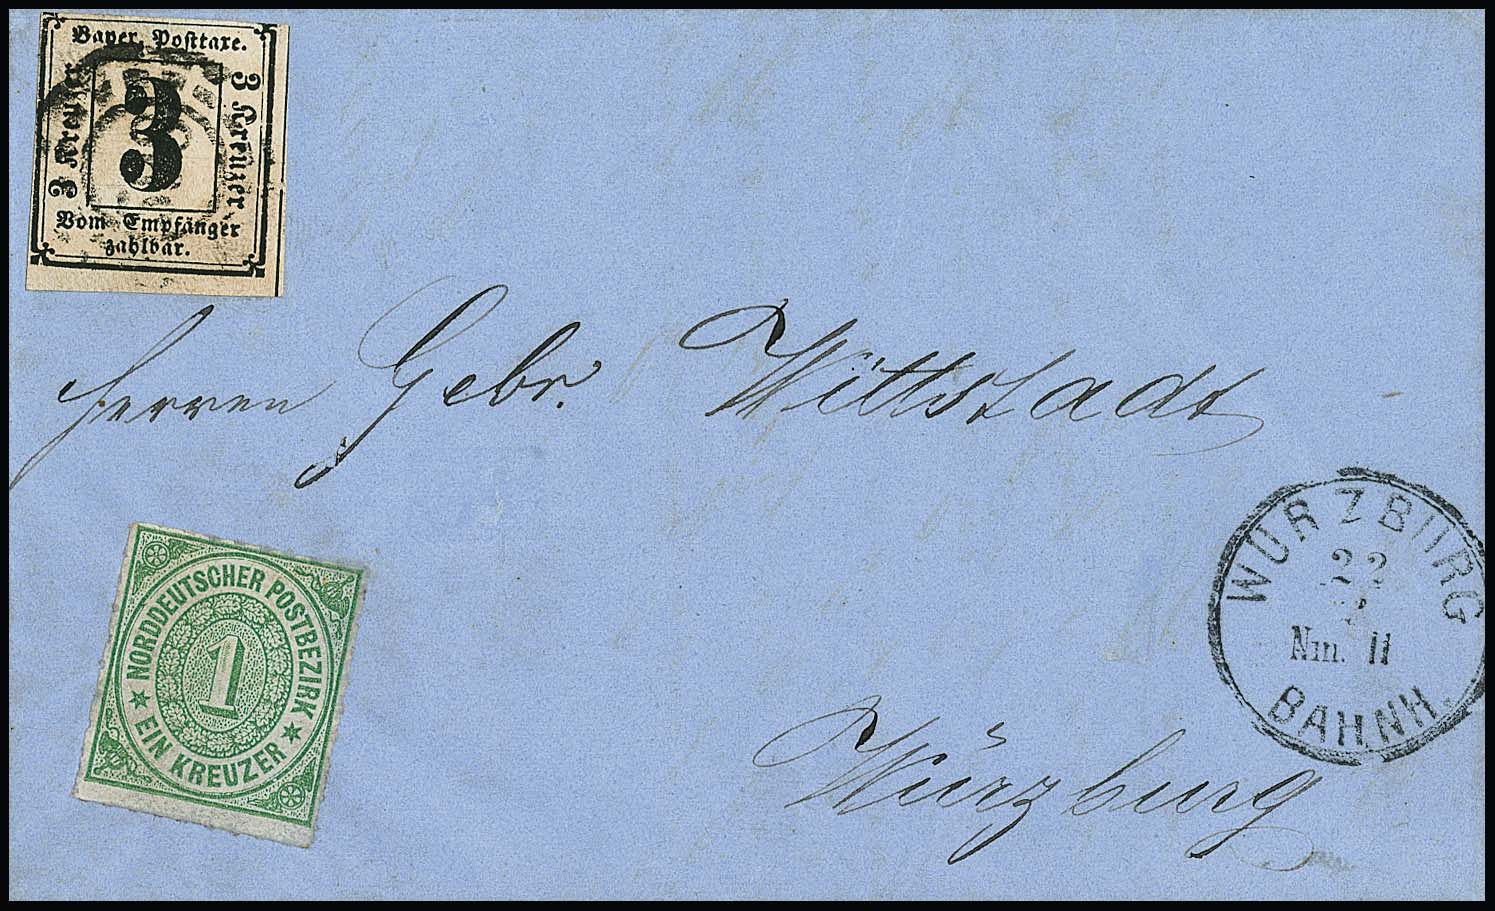 Bayer. Posttaxe.
3 Kreuzer
3
3 Kreuzer
Vom Empfänger
zahlbar.
Herren Gebr. Wittstadt
NORDDEUTSCHER POSTBEZIRK
1
EIN KREUZER
WÜRZBURG
22
Nm. II
BAHNH.
Würzburg